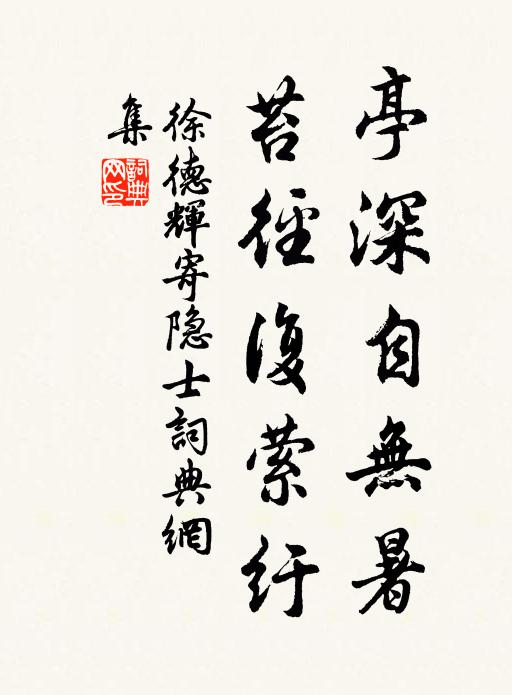 亭深自無暑
苔徑復萦紆
徐德輝寄隐士詞典網
集
詞典網印